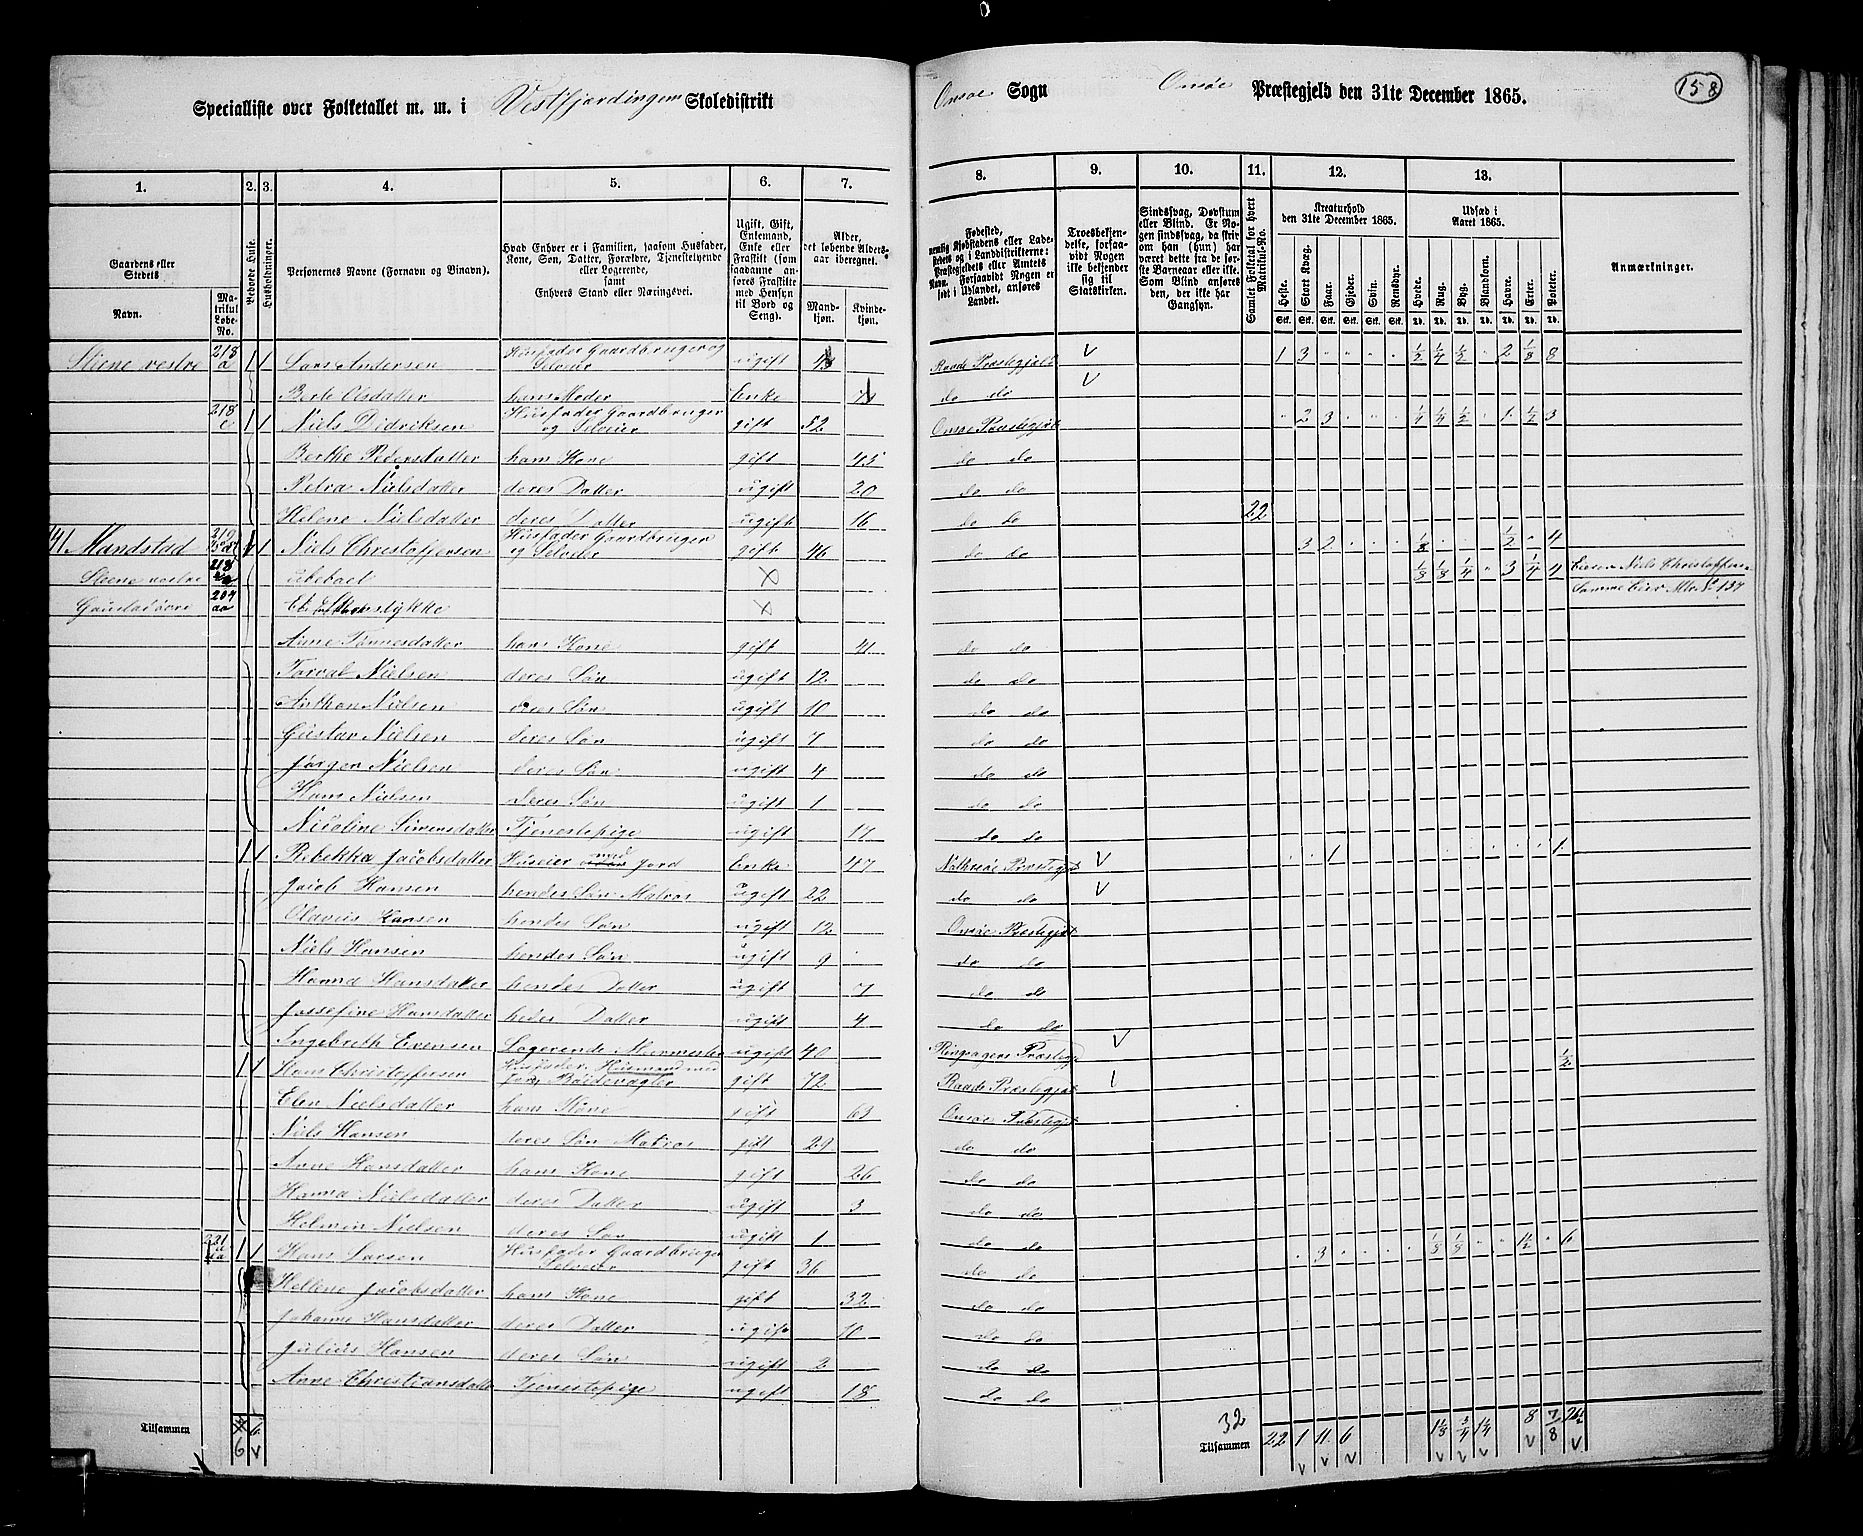 158
Specialliste over Folketallet m. m. i Vestfjerdingen Skoledistrikt Onsøe Sogn Onsøe Præstegjeld den 31te December 1865.
1. 2. 3. 4. 5. 6. 7. 8. 9. 10. 11. 12. 13.
Gaardens eller Stedets
Navn. Matrikul Løbe-No.
Beboede Huse.
Husholdninger.
Personernes Navne (Fornavn og Tilnavn).
Hvad Enhver er i Familien, saasom Husfader, Kone, Søn, Datter, Forældre, Tjenestetyende eller Logerende, samt Enhvers Stand eller Næringsvei.
Ugift, Gift, Enkemand, Enke eller Fraskilt (som saadanne anføres Fraskilte med Hensyn til Bord og Seng).
Alder, det løbende Aldersaar iberegnet.
Mandkjøn. Kvindekjøn.
Fødested,
Troesbekjendelse, forsaavidt Nogen ikke bekjender sig til Statskirken.
Sindssvag, Døvstum eller Blind.
Samlet Folketal for hvert Matrikul-No.
Kreaturhold den 31te December 1865.
Heste. Stort Kvæg. Faar. Gjeder. Sviin. Rensdyr.
Udsæd i Aaret 1865.
Hvede. Rug. Byg. Blandkorn. Havre. Erter. Poteter.
Anmærkninger.
Steene vestre 218 a 1 1 Lars Andersen Husfader Gaardbruger og Selveier ugift Raade Præstegjeld V 1 3 " " " " 1/2 1/4 1/2 " 2 1/8 8
Berte Olsdatter hans Moder Enke do do V
218 c 1 1 Niels Didriksen Husfader Gaardbruger og Selveier gift 52 Onsøe Præstegjeld " 2 3 " " " 1/4 1/4 1/2 " 1 1/2 3
Berthe Pedersdatter hans Kone gift 45 do do
Petra Nielsdatter deres Datter ugift 20 do do
Helene Nielsdatter deres Datter ugift 16 do do 22
141 Mandstad 219 1 1 Niels Christoffersen Husfader Gaardbruger og Selveier gift 46 do do 3 2 1/8 1/2 " 4
Steene vestre 218 ubeboet × 1/8 1/8 1/4 " 3 1/4 4 Eieren Niels Christoffersen
207 aa Et Skovstykke × Samme Eier M No 137
Anne Tønnesdatter hans Kone gift 41 do do
Torval Nielsen deres Søn ugift 12 do do
Anthon Nielsen deres Søn ugift 10 do do
Gustav Nielsen deres Søn ugift 7 do do
Jørgen Nielsen deres Søn ugift 4 do do
Hans Nielsen deres Søn ugift 1 do do
Nicoline Simensdatter Tjenestepige ugift 17 do do
1 1 Rebekka Jacobsdatter Huseier med Jord Enke 47 Præstegjeld V " " 1 " " " " " " " " " 1
Jacob Hansen hendes Søn Matros ugift 22 do do V
Olavus Hansen hendes Søn ugift 12 Onsøe Præstegjeld
Niels Hansen hendes Søn ugift 9 do do
Hanna Hansdatter hendes Datter ugift 7 do do
Jossefine Hansdatter hedes Datter ugift 4 do do
Ingebreth Evensen Logerende Murmester ugift 40 Præstegj V
1 1 Hans Christoffersen Husfader, Husmand med Jord gift 72 Raade Præstegjeld V 1/2
Elen Nielsdatter hans Kone gift 63 Onsøe Præstegjeld
Niels Hansen deres Søn Matros gift 29 do do
Anne Hansdatter hans Kone gift 26 do do
Hanna Nielsdatter deres Datter ugift 3 do do
Helmin Nielsen deres Søn ugift 1 do do
221 1 1 Hans Larsen Husfader Gaardbruger Selveier gift 36 do do " 3 " " " " 1/8 1/8 " " 1 1/2 " 6
Hellene Jacobsdatter hans Kone gift 32 do do
Johanne Hansdatter deres Datter ugift 10 do do
Julius Hansen deres Søn ugift 2 do do
Anne Christiansdatter Tjenestepige ugift 18 do do
Tilsammen 6 6 V 32
Tilsammen 22 1 11 6 1 1/8 3/4 1 1/4 8 7/8 26 1/2